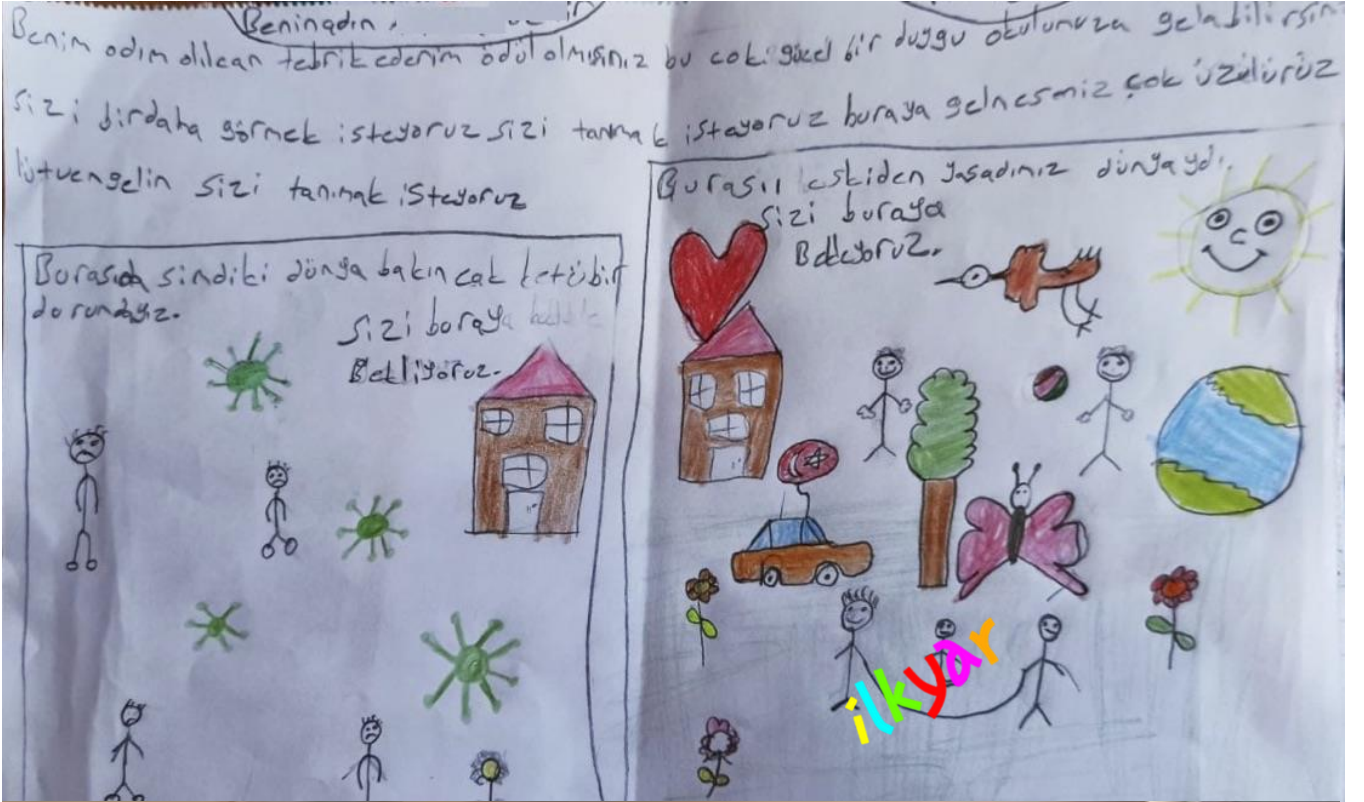 Beninadın.
Benim adım dilcan tebrik ederim ödül olmışınız bu cok güzel bir duygu okulunuza gelebilirsin
sizi birdaha görmek isteyoruz sizi tanımak isteyoruz buraya gelnesmiz çok üzülürüz
lütvengelin sizi tanımak isteyoruz
Burası şindiki dünya bakın cak kötübir
dorundayız.
sizi boraya
Bekliyoruz.
Burasıı eskiden yasadınız dünyaydı.
sizi buraya
Bekleyoruz.
ilkyar